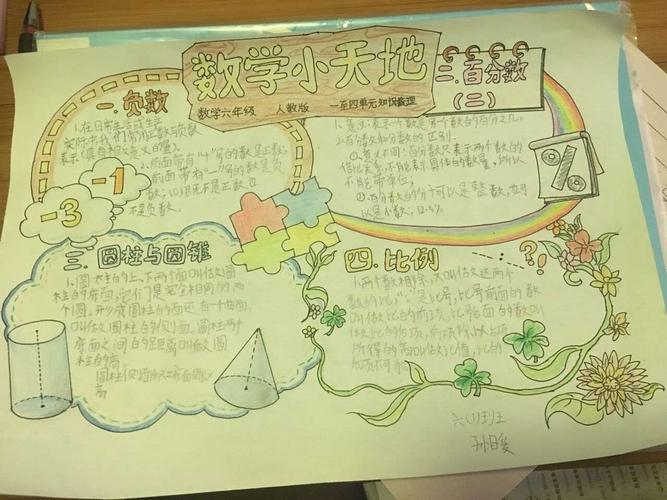 数学小天地
数学六年级 人教版 一至四单元知识整理
一.负数
1.在日常生活或生产
实际中我们常用正数与负数
表示(具有相反意义的量)。
2.前面带有"+"号的数是正数,
前面带有"-"号的数是负
数,(0)既不是正数也
不是负数。
-1
-3
二.百分数
(二)
1.意义:表示一个数是另一个数的百分之几。
2.百分数和分数的区别:
①意义不同:百分数只表示两个数的
倍比关系,不能表示具体的数量,所以
不能带单位。
②百分数的分子可以是整数,也可
以是小数,
%
三.圆柱与圆锥
1.圆柱的上、下两个面叫做圆
柱的底面,它们是完全相同的两
个圆,形成圆柱的面还有一个曲面,
叫做圆柱的侧面。圆柱两个
底面之间的距离叫做圆
柱的高。
圆柱
高
四.比例
??
1.两个数相除,又叫做这两个
数的比,":"是比号,比号前面的数
叫做比的前项,比号后面的数叫
做比的后项,前项除以后项
所得的商叫做比值,比的
后项不可
六(1)班